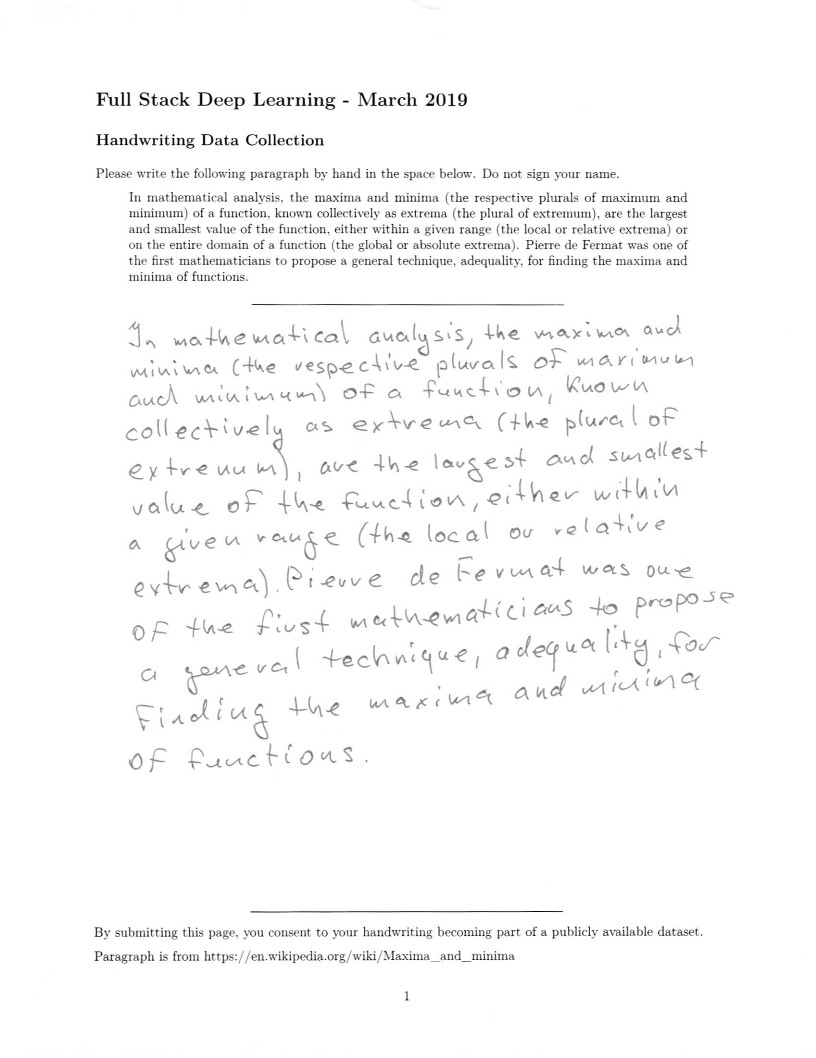 Full Stack Deep Learning - March 2019
Handwriting Data Collection
Please write the following paragraph by hand in the space below. Do not sign your name.
In mathematical analysis, the maxima and minima (the respective plurals of maximum and
minimum) of a function, known collectively as extrema (the plural of extremum), are the largest
and smallest value of the function, either within a given range (the local or relative extrema) or
on the entire domain of a function (the global or absolute extrema). Pierre de Fermat was one of
the first mathematicians to propose a general technique, adequality, for finding the maxima and
minima of functions.
In mathematical analysis, the maxima and
minima (the respective plurals of maximum
and minimum) of a function, known
collectively as extrema (the plural of
extremum), are the largest and smallest
value of the function, either within
a given range (the local or relative
extrema). Pierre de Fermat was one
of the first mathematicians to propose
a general technique, adequality, for
Finding the maxima and minima
of functions.
By submitting this page, you consent to your handwriting becoming part of a publicly available dataset.
Paragraph is from https://en.wikipedia.org/wiki/Maxima_and_minima
1